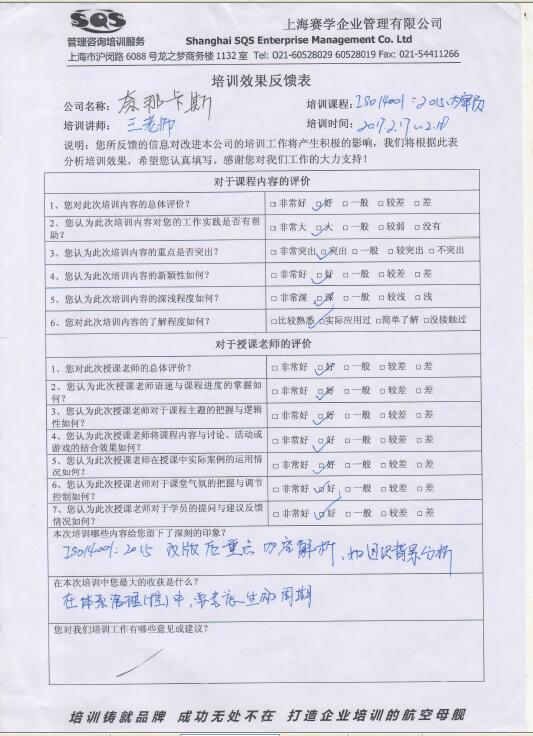 SQS
管理咨询培训服务
上海赛学企业管理有限公司
Shanghai SQS Enterprise Management Co. Ltd
上海市沪闵路 6088 号龙之梦商务楼 1132 室 Tel: 021-60528029 60528019 Fax: 021-54411266
培训效果反馈表
公司名称：奈那卡斯 培训课程：ISO14001：2015内审员
培训讲师：王老师 培训时间：2017.2.17~2.18
说明：您所反馈的信息对改进本公司的培训工作将产生积极的影响，我们将根据此表
分析培训效果，希望您认真填写。感谢您对我们工作的大力支持！
对于课程内容的评价
1、您对此次培训内容的总体评价？ □非常好 □好 □一般 □较差 □差
2、您认为此次培训内容对您的工作实践是否有帮
助？ □非常大 □大 □一般 □较弱 □没有
3、您认为此次培训内容的重点是否突出？ □非常突出 □突出 □一般 □较突出 □不突出
4、您认为此次培训内容的新颖性如何？ □非常好 □好 □一般 □较差 □差
5、您认为此次培训内容的深浅程度如何？ □非常深 □深 □一般 □较浅 □浅
6、您对此次培训内容的了解程度如何？ □比较熟悉 □实际应用过 □简单了解 □没接触过
对于授课老师的评价
1、您对此次授课老师的总体评价？ □非常好 □好 □一般 □较差 □差
2、您认为此次授课老师语速与课程进度的掌握如
何？ □非常好 □好 □一般 □较差 □差
3、您认为此次授课老师对于课程主题的把握与逻辑
性如何？ □非常好 □好 □一般 □较差 □差
4、您认为此次授课老师将课程内容与讨论、活动或
游戏的结合效果如何？ □非常好 □好 □一般 □较差 □差
5、您认为此次授课老师在授课中实际案例的运用情
况如何？ □非常好 □好 □一般 □较差 □差
6、您认为此次授课老师对于课堂气氛的把握与调节
控制如何？ □非常好 □好 □一般 □较差 □差
7、您认为此次授课老师对于学员的提问与建议反馈
情况如何？ □非常好 □好 □一般 □较差 □差
本次培训哪些内容给您留下了深刻的印象？
ISO14001：2015 改版后重点内容解析、和背景分析
在本次培训中您最大的收获是什么？
在体系管理中，要考虑生命周期
您对我们培训工作有哪些意见或建议？
培训铸就品牌 成功无处不在 打造企业培训的航空母舰